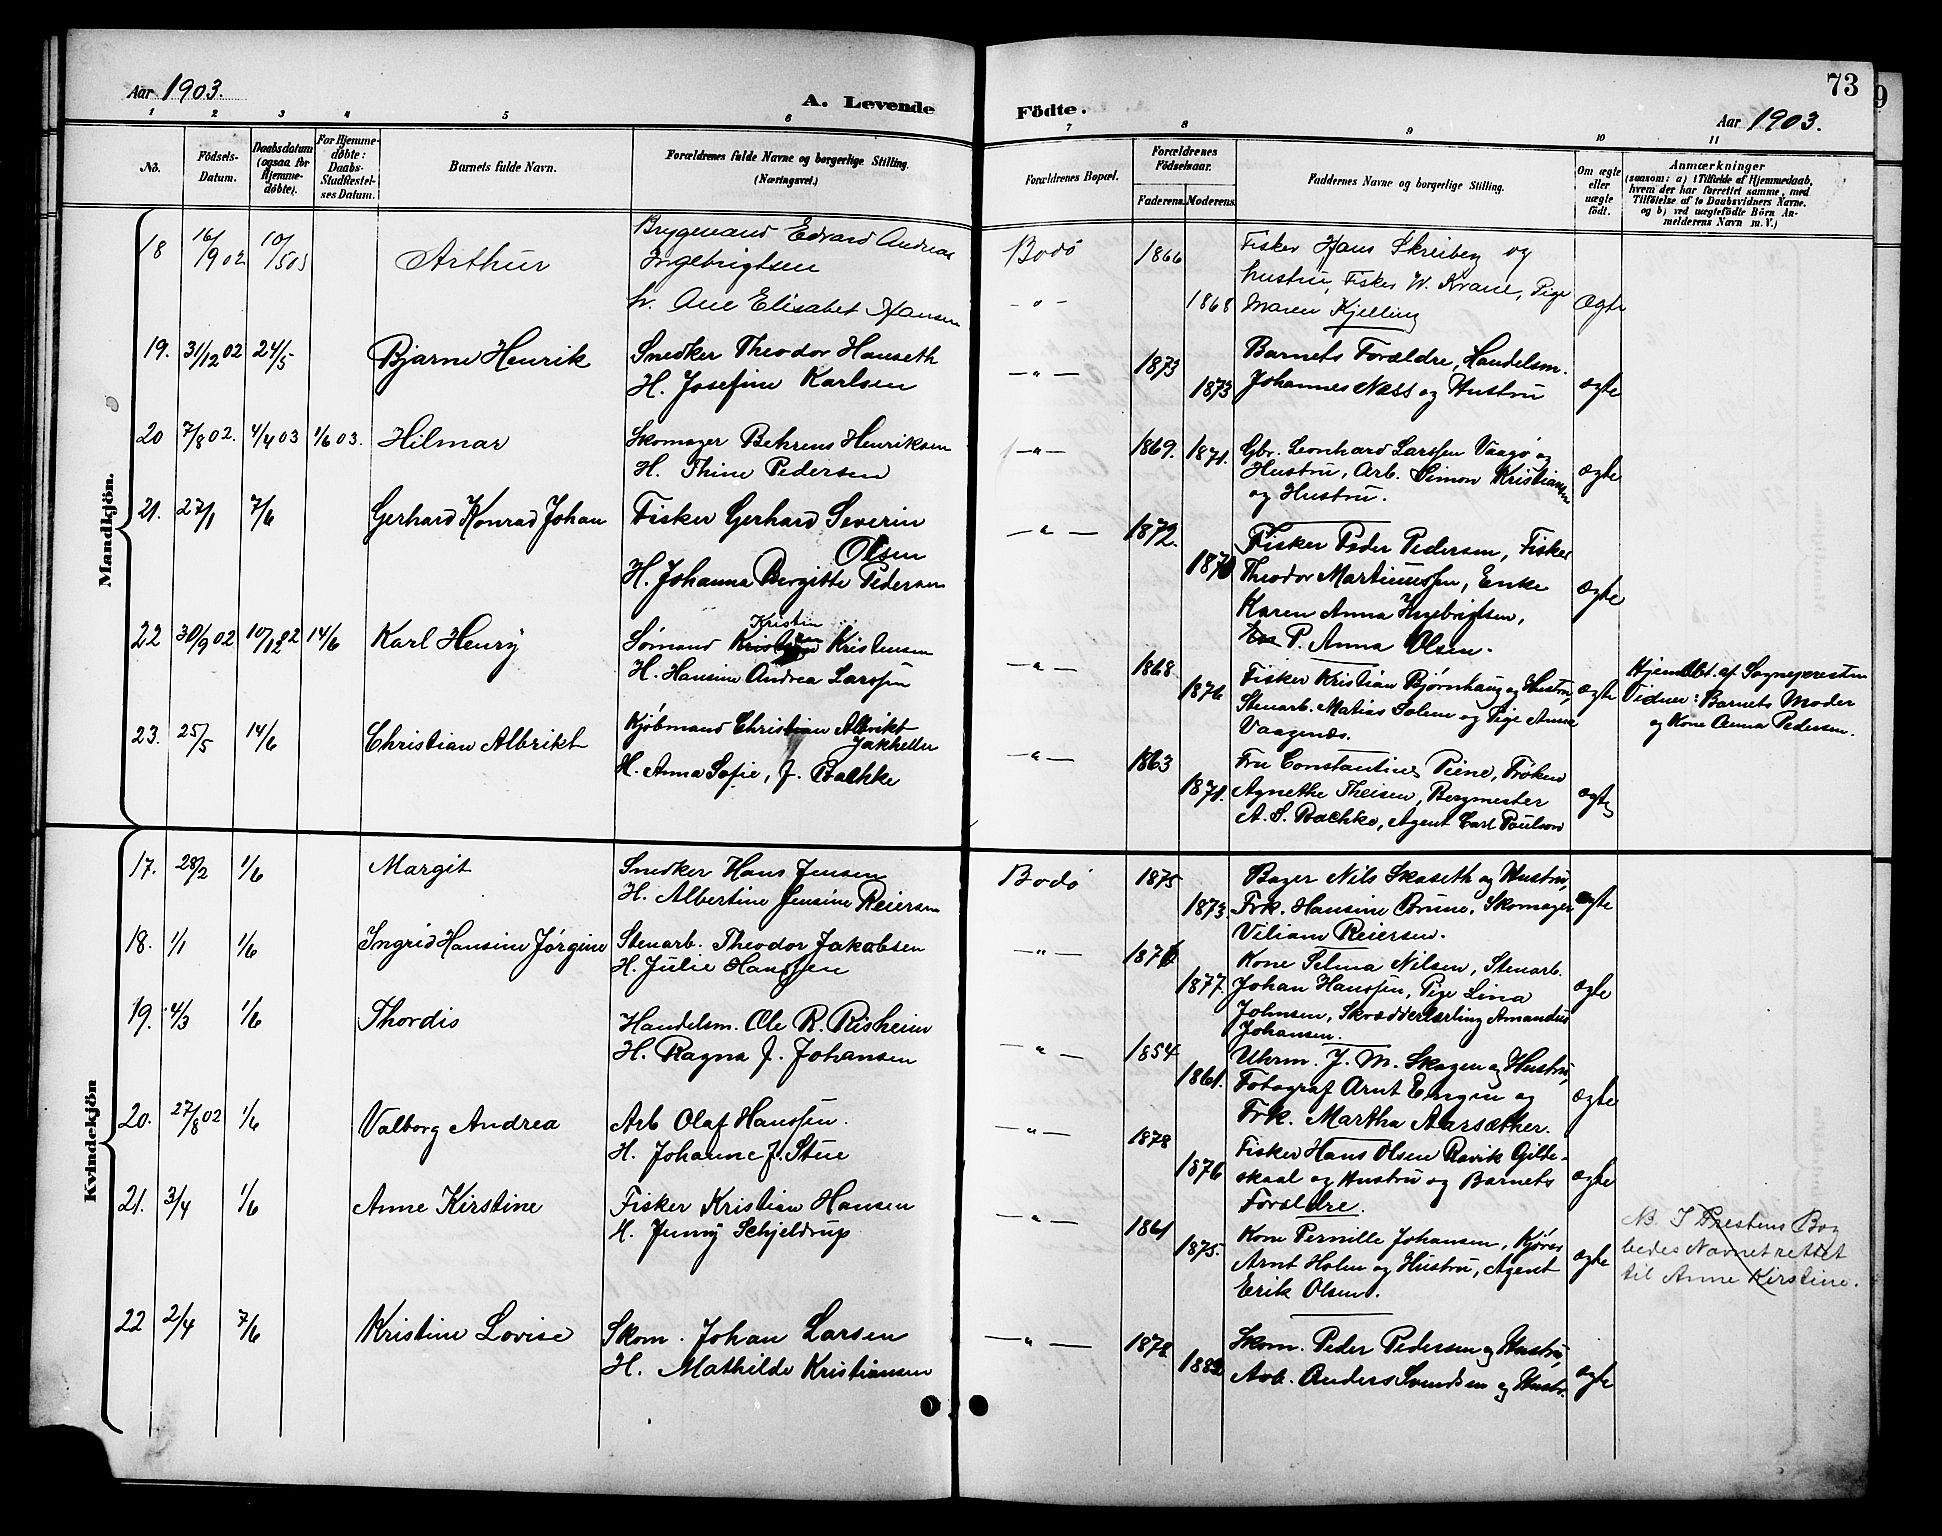 Aar 1903.
A. Levende
Födte.
Aar 1903.
73
1 2 3 4 5 6 7 8 9 10 11
No.
Födsels-
Datum.
Daabsdatum
(ogsaa for
Hjemme-
döbte).
For Hjemme-
döbte:
Daabs-
Stadfæstel-
ses Datum.
Barnets fulde Navn.
Forældrenes fulde Navne og borgerlige Stilling.
(Næringsvei.)
Forældrenes Bopæl.
Forældrenes
Födselsaar.
Faderens.
Moderens.
Faddernes Navne og borgerlige Stilling.
Om ægte
eller
uægte
födt.
Anmærkninger
(saasom: a) i Tilfælde af Hjemmedaab,
hvem der har forrettet samme, med
Tilföielse af to Daabsvidners Navne.
og b) ved uægtefödte Börn An-
melderens Navn m. V.)
Mandkjön.
18 16/9 02 10/5 03 Arthur
Bryggemand Edvard Andreas
Ingebrigtsen
H. Ane Elisabet Hansen
Bodø
— " —
1866
1868
Fisker Hans Skreiberg og
hustru, Fisker W. Krane, Pige
Maren Kjelling
ægte
19. 31/12 02 24/5 Bjarne Henrik
Snedker Theodor Hanseth
H. Josefine Karlsen
— " —
1873
1873
Barnets Forældre, Handelsm.
Johannes Næss og Hustru
ægte
20 7/8 02. 4/4 03 1/6 03. Hilmar
Skomager Behrens Henriksen
H. Thine Pedersen
— " —
1869.
1871.
Gbr. Leonhard Larssen Vaagø og
Hustru, Arb. Simon Kristiansen
og Hustru.
ægte
21. 27/1 7/6 Gerhard Konrad Johan
Fisker Gerhard Severin
Olsen
H. Johanna Bergitte Pedersen
— " —
1872.
1870
Fisker Peder Pedersen, Fisker
Theodor Martinussen, Enke
Karen Anna Ingebrigtsen,
P. Anna Olsen.
ægte
22 30/9 02 10/12 02 14/6 Karl Henry
Kristin
Sømand Kristensen
H. Hansine Andrea Larssen
— " —
1868.
1876
Fisker Kristian Bjørnhaug og Hustru,
Stenarb. Matias Solem og Pige Anna
Vaagenæs.
ægte
Hjemdøbt af Sognepresten
Vidner: Barnets Moder
og Kone Anna Pedersen.
23. 25/5 14/6 Christian Albrikt
Kjøbmand Christian Albrikt
Jakhelln
H. Anna Sofie, f. Bachke
— " —
1863
1871.
Fru Constantine Piene, Frøken
Agnethe Theisen, Bergmester
A. S. Bachke, Agent Carl Paulson
ægte
Kvindekjön
17. 28/2 1/6 Margit
Snedker Hans Jensen
H. Albertine Jensine Reiersen
Bodø
1875
1873
Bager Nils Skaseth og Hustru,
Frk. Hansine Brune, Skomager
Viliam Reiersen.
ægte
18. 1/1 1/6 Ingrid Hansine Jørgine
Stenarb. Theodor Jakobsen
H. Julie Hanssen
— " —
1877.
Kone Selma Nilsen, Stenarb.
Johan Hanssen, Pige Lina
Johnsen, Skrædderlærling Amandus
Johansen.
ægte
19. 4/3 1/6 Thordis
Handelsm. Ole R. Risheim
H. Ragna J. Johansen
— " —
1854
1861.
Uhrm. J. M. Skagen og Hustru,
Fotograf Arnt Engen og
Frk. Martha Aarsæther.
ægte
20. 27/8 02 1/6 Valborg Andrea
Arb Olaf Hanssen.
H. Johanne J. Stue
— " —
1878
1876
Fisker Hans Olsen Ravik Gilde-
skaal og Hustru og Barnets
Forældre.
ægte
21. 3/4 1/6 Anne Kirstine
Fisker Kristian Hansen
H. Jenny Schjeldrup
— " —
1861
1875.
Kone Pernille Johansen, Kjører
Arnt Holm og Hustru, Agent
Erik Olsen.
ægte
NB. I Prestens Bog
bedes Navnet rettet
til Anne Kirstine.
22 2/4 7/6 Kristine Lovise
Skom. Johan Larsen
H. Mathilde Kristiansen
— " —
1878
1882
Skom. Peder Pedersen og Hustru,
Arb. Anders Svendsen og Hustr.
ægte